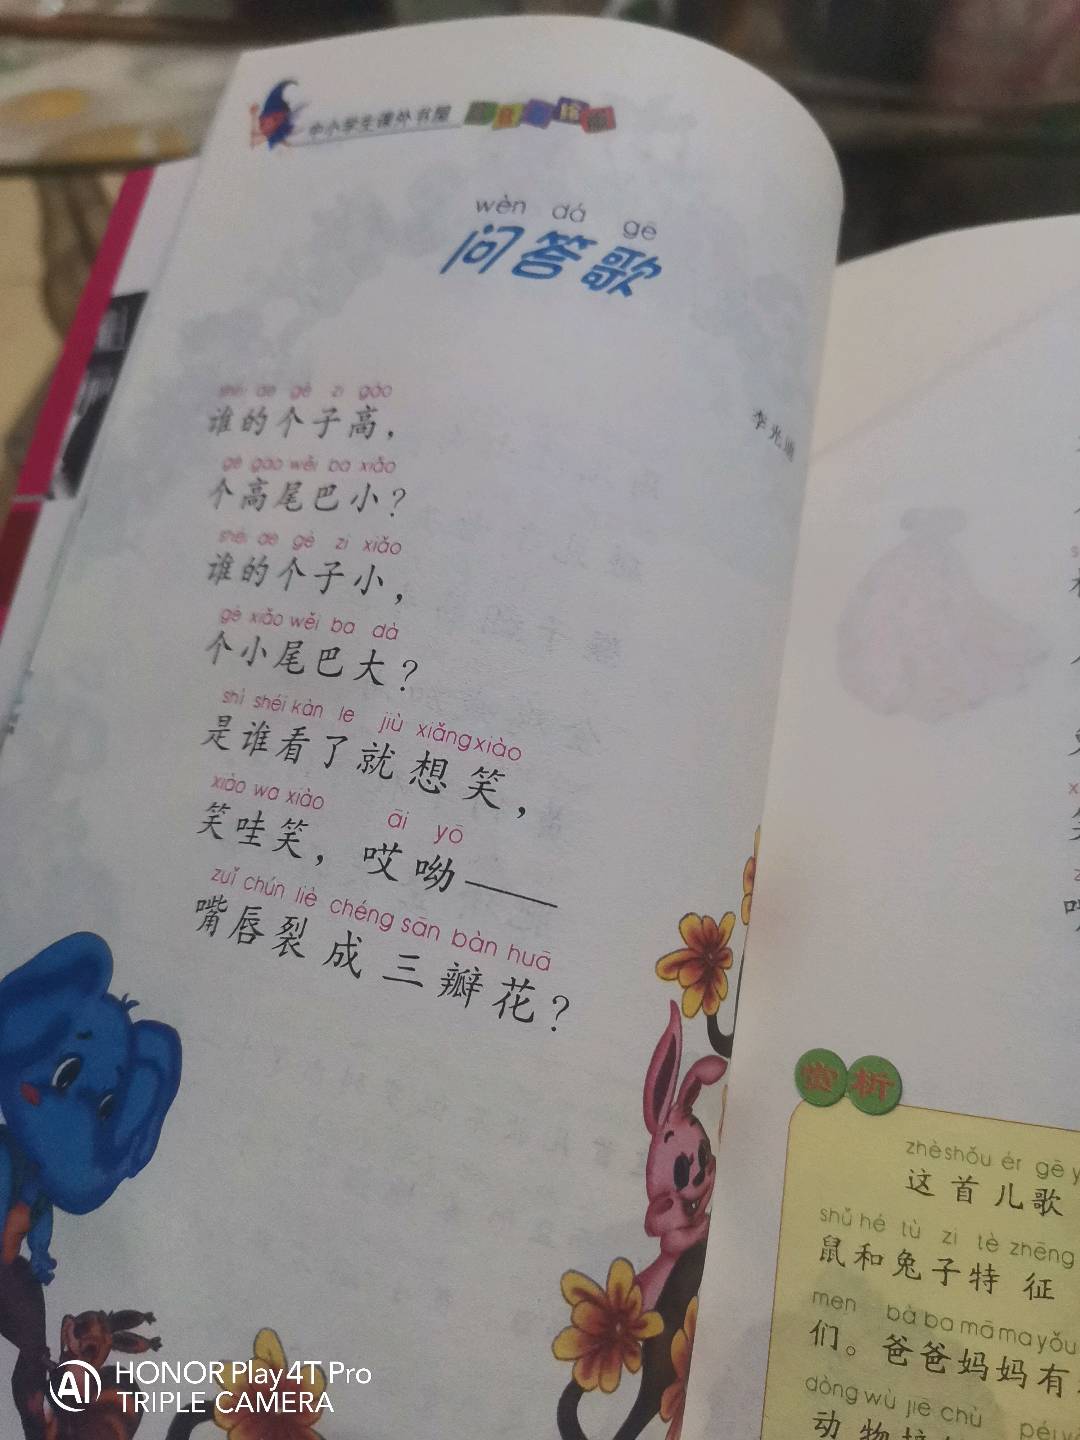 中小学生课外书屋
wèn dá gē
问答歌
李光
shéi de gè zi gāo
谁的个子高，
gè gāo wěi ba xiǎo
个高尾巴小？
shéi de gè zi xiǎo
谁的个子小，
gè xiǎo wěi ba dà
个小尾巴大？
shì shéi kàn le jiù xiǎng xiào
是谁看了就想笑，
xiào wa xiào āi yō
笑哇笑，哎呦——
zuǐ chún liè chéng sān bàn huā
嘴唇裂成三瓣花？
赏析
zhè shǒu ér gē
这首儿歌
shǔ hé tù zi tè zhēng
鼠和兔子特征
men bà ba mā ma yǒu
们。爸爸妈妈有
dòng wù jiē chù
动物接
HONOR Play4T Pro
TRIPLE CAMERA